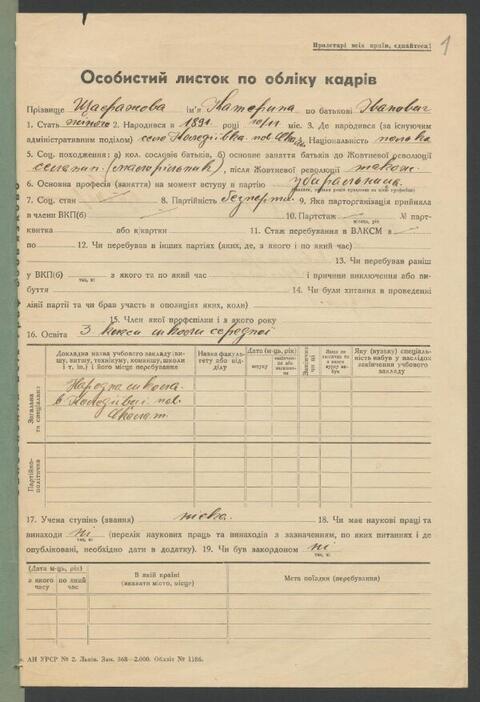 Пролетарі всіх країн, єднайтеся!
1
Особистий листок по обліку кадрів
Прізвище ім'я Катерина по батькові
1. Стать жіноча 2. Народився в 1891 році 10/II міс. 3. Де народився (за існуючим
адміністративним поділом) село Національність полька
5. Соц. походження: а) кол. сословіє батьків, б) основне заняття батьків до Жовтневої революції
селяни, після Жовтневої революції також
6. Основна професія (заняття) на момент вступу в партію
7. Соц. стан 8. Партійність безпарт. 9. Яка парторганізація прийняла
в члени ВКП(б) 10. Партстаж № парт-
місяць, рік
квитка або к/картки 11. Стаж перебування в ВЛКСМ в
по 12. Чи перебував в інших партіях (яких, де, з якого і по який час)
13. Чи перебував раніш
у ВКП(б) з якого та по який час і причини виключення або ви-
так, ні
буття 14. Чи були хитання в проведенні
лінії партії та чи брав участь в опозиціях яких, коли)
15. Член якої профспілки і з якого року
16. Освіта 3 класи школи середної
Докладна назва учбового закладу (ви-
шу, витшу, технікуму, комвишу, школи
і т. ін.) і його місце перебування
Назва факуль-
тету або від-
ділу
Дата (м-ць, рік)
вступу
Закінчив
чи ні
Яку (вузьку) спеціаль-
ність набув у наслідок
закінчення учбового
закладу
Загальна
та спеціальна
Народна школа
в
Партійно-
політична
17. Учена ступінь (звання) 18. Чи має наукові праці та
винаходи ні (перелік наукових праць та винаходів з зазначенням, по яких питаннях і де
так, ні
опубліковані, необхідно дати в додатку). 19. Чи був закордоном ні
так, ні
(Дата м-ць, рік)
з якого часу
по який час
В якій країні
(вказати місто, місце)
Мета поїздки (перебування)
АН УРСР № 2. Львів. Зам. 368—2.000. Обліт № 1186.